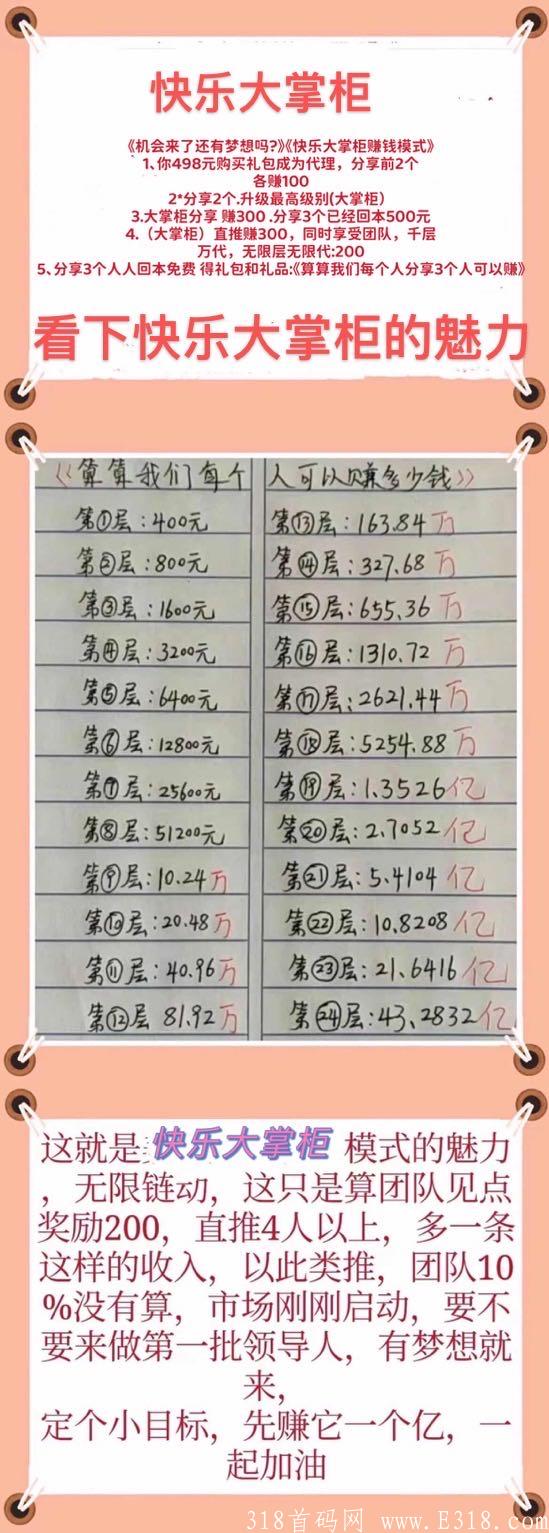 快乐大掌柜
《机会来了还有梦想吗?》《快乐大掌柜赚钱模式》
1、你498元购买礼包成为代理，分享前2个
各赚100
2*分享2个.升级最高级别(大掌柜)
3.大掌柜分享 赚300 .分享3个已经回本500元
4.（大掌柜）直推赚300，同时享受团队，千层
万代，无限层无限代:200
5、分享3个人人回本免费 得礼包和礼品:《算算我们每个人分享3个人可以赚》
看下快乐大掌柜的魅力
《算算我们每个人可以赚多少钱》
第①层:400元
第②层:800元
第③层:1600元
第④层:3200元
第⑤层:6400元
第⑥层:12800元
第⑦层:25600元
第⑧层:51200元
第⑨层:10.24万
第⑩层:20.48万
第⑪层:40.96万
第⑫层 81.92万
第⑬层:163.84万
第⑭层:327.68万
第⑮层:655.36万
第⑯层:1310.72万
第⑰层:2621.44万
第⑱层:5254.88万
第⑲层:1.3526亿
第⑳层:2.7052亿
第㉑层:5.4104亿
第㉒层:10.8208亿
第㉓层:21.6416亿
第㉔层:43.2832亿
这就是 快乐大掌柜 模式的魅力
，无限链动，这只是算团队见点
奖励200，直推4人以上，多一条
这样的收入，以此类推，团队10
%没有算，市场刚刚启动，要不
要来做第一批领导人，有梦想就
来，
定个小目标，先赚它一个亿，一
起加油
318首码网 www.E318.com